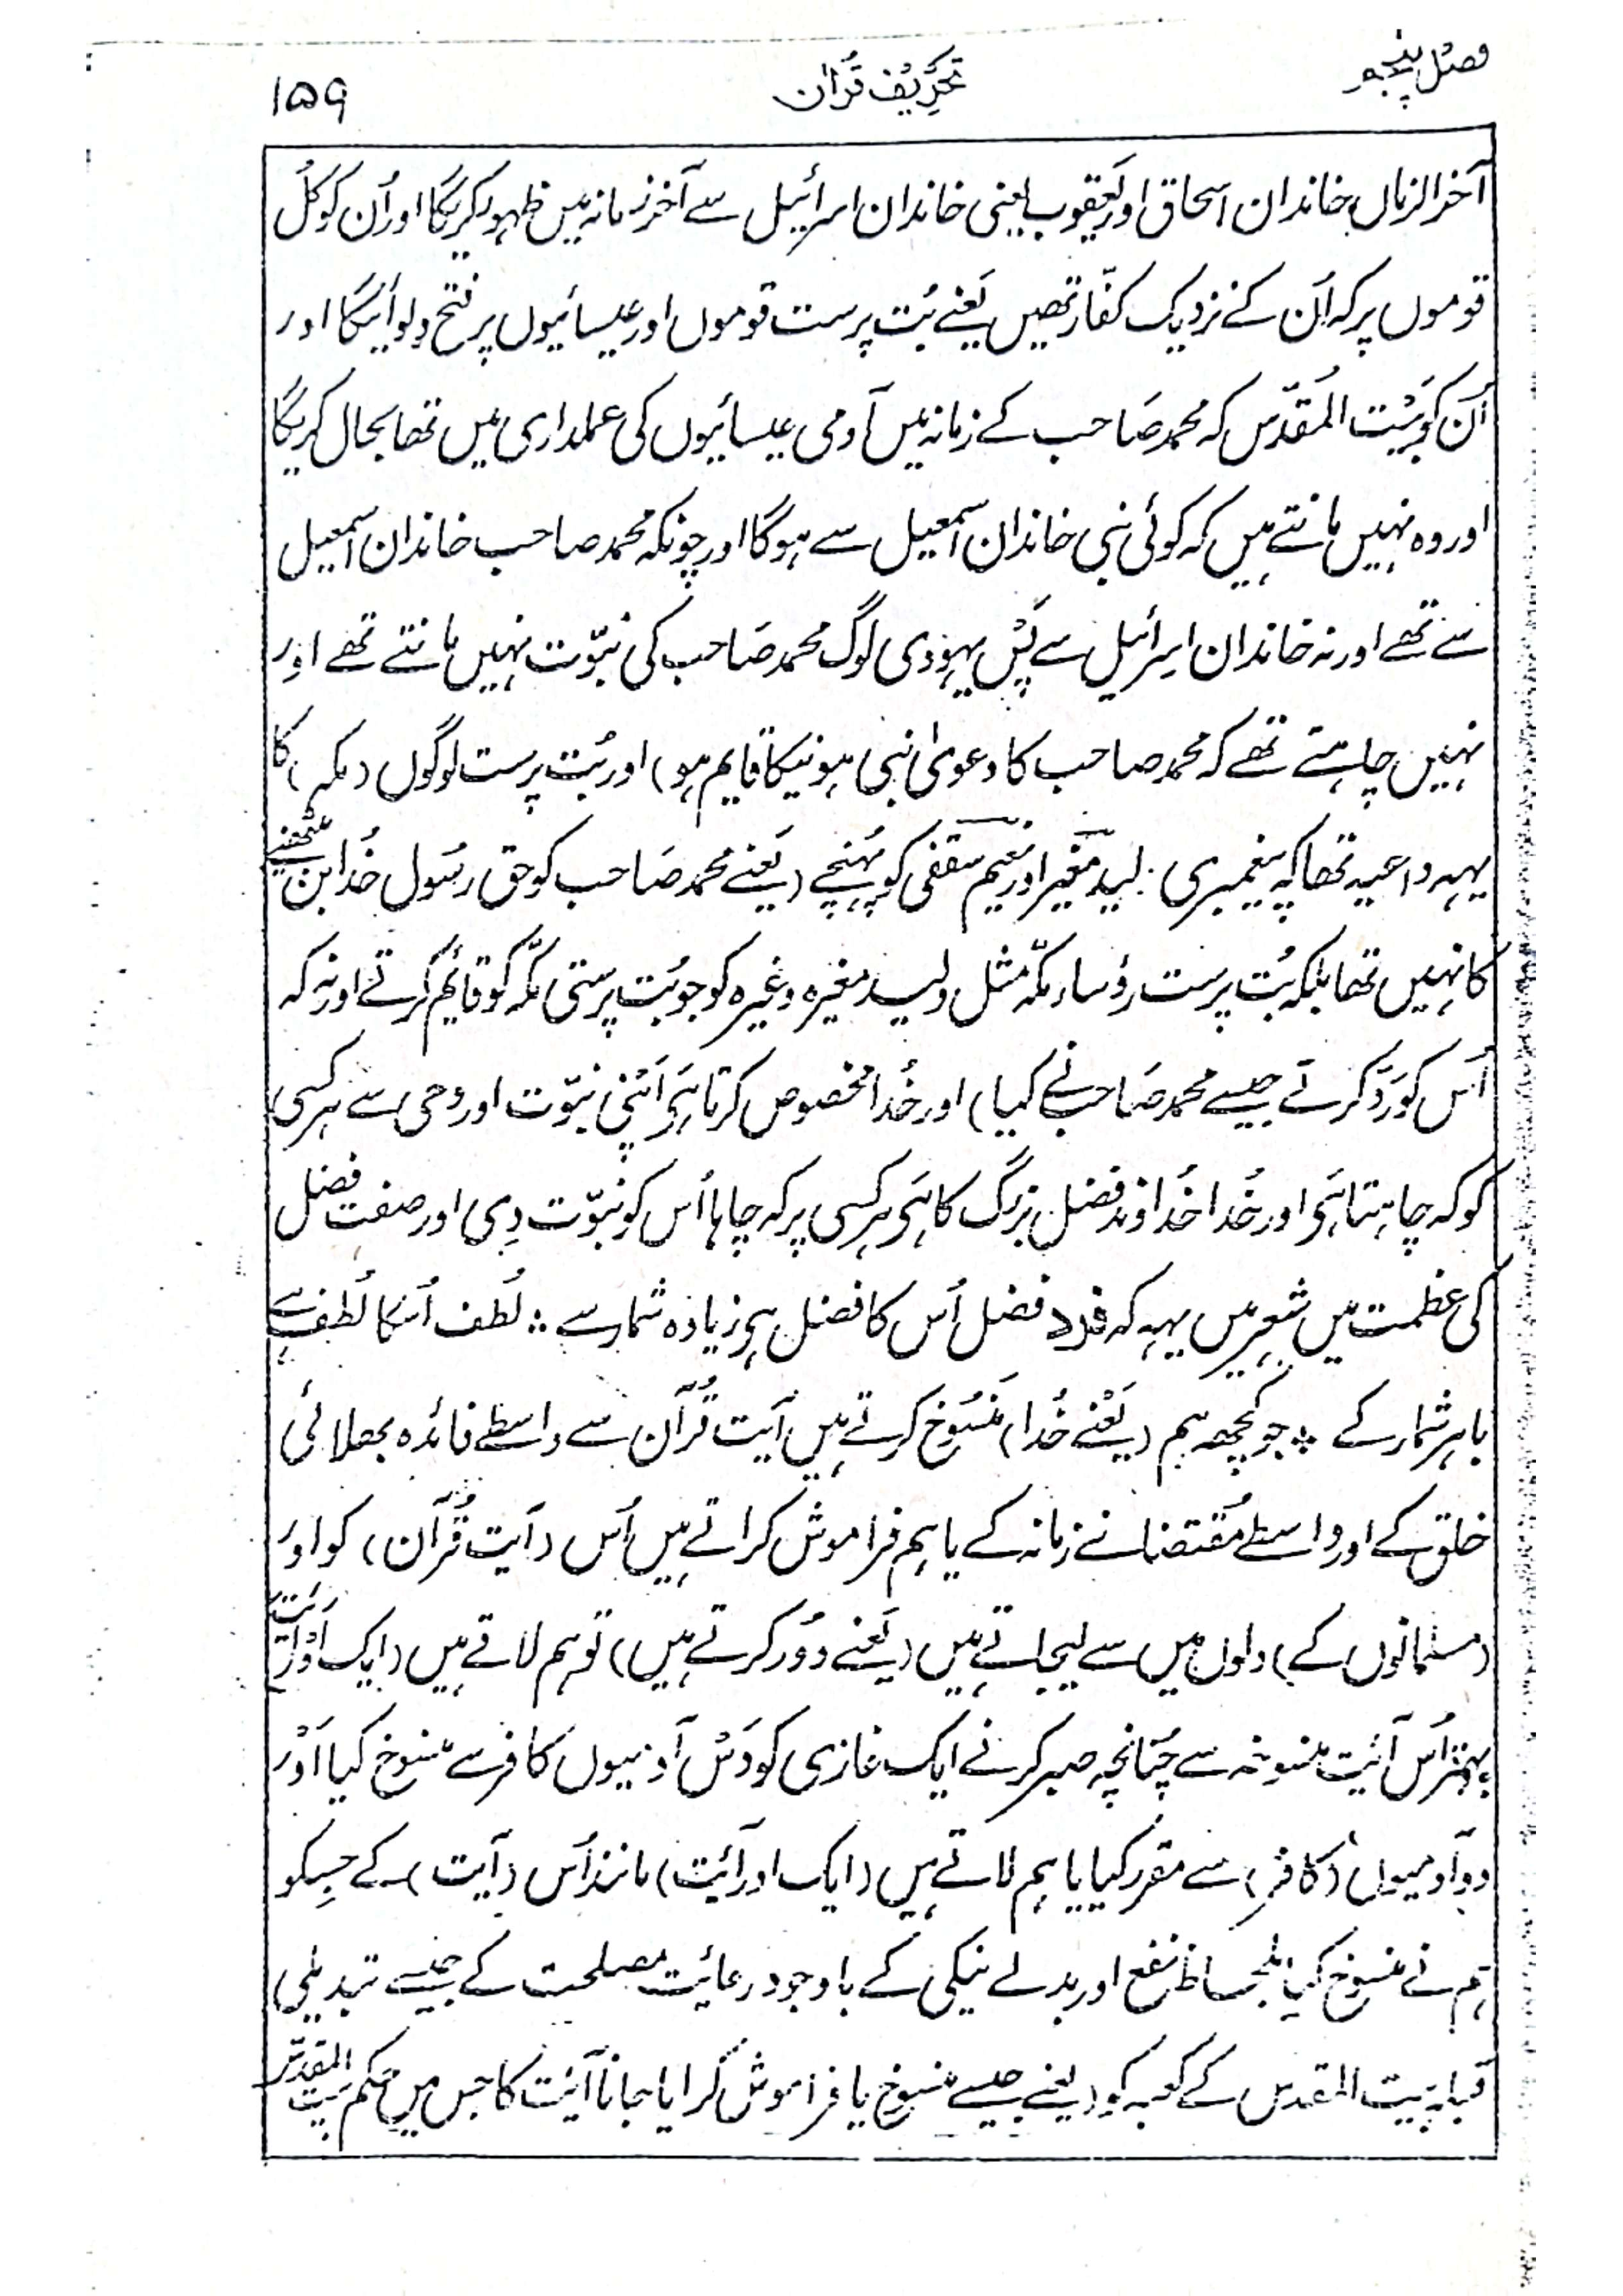 فصل پنجم
تحریف قرآن
۱۵۹
آخرالزماں خاندان اسحاق اور یعقوب یعنی خاندان اسرائیل سے آخر زمانہ میں ظہور کریگا اور اُن کو کل
قوموں پر کہ اُن کے نزدیک کفّار تھیں یَعنے بُت پرست قوموں اور عیسائیوں پر فتح دِلوائیگا اور
اُن کو بَیْت المُقدّس کہ محمد صَاحب کے زمانہ میں رومی عیسائیوں کی عملداری میں تھا بحال کریگا
اور وہ نہیں مانتے ہیں کہ کوئی نبی خاندان اسمٰعیل سے ہوگا اور چونکہ محمد صاحب خاندان اسمٰعیل
سے تھے اور نہ خاندان اسرائیل سے پَس یہودی لوگ محمد صَاحب کی نبوّت نہیں مانتے تھے اور
نہیں چاہتے تھے کہ محمد صاحب کا دعویٰ نبی ہونیکا قایم ہو) اور بُت پرست لوگوں (مکہ) کا
یہہ داعیہ تھا کہ پیغمبری ولید مغیر اور نعیم سقفی کو پہُنچے (یَعنے محمد صَاحب کو حق رسُول خُدا بن
کا نہیں تھا بلکہ بُت پرست رؤساء مکّہ مثل ولید مغیرہ وغیرہ کو جو بُت پرستی مکّہ کو قائم کرتے اور نہ کہ
اُس کو رَدّ کرتے جیسے محمد صَاحب نے کیا) اور خُدا مخصوص کرتا ہَی اَپنی نبوّت اور وحی سے ہر کسی
کو کہ چاہتا ہَی اور خُدا خُداوند فضل بزرگ کا ہَی ہر کسی پر کہ چاہا اُس کو نبوّت دِی اور صفت فضل
کی عظمت میں شعر میں یہہ کہ فرد فضل اُس کا فضل ہی زیادہ شمار سے ؞ لُطف اُسکا لُطف ہے
باہر شمار کے ؞ جو کچھہ ہم (یَعْنے خُدا) مَنسُوخ کرتے ہیں آیَت قُرآن سے واسطے فائدہ بھلائی
خلق کے اور واسطے مُقتضائے زمانہ کے یا ہم فراموش کراتے ہیں اُس (آیَت قُرآن) کو اور
(مسلمانوں کے) دلوں میں سے لیجاتے ہیں (یَعنے دُور کرتے ہیں) تو ہم لاتے ہیں (ایک اَوْر آیَت)
بہتر اُس آئیت منسوخہ سے چُنانچہ صبر کرنے ایک غازی کو دَس آدمیوں کافر سے منسوخ کیا اَوْر
دو آدمیوں (کافر) سے مقرر کیا یا ہم لاتے ہیں (ایک اور آئیت) مانند اُس (آیت) کے جِسکو
ہم نے منسوخ کیا بلحاظ نفع اور بدلے نیکی کے باوجود رعائیت مصلحت کے جیسے تبدیلی
قبلہ بَیت المقدس کے کعبہ کو (یعنے جیسے منسوخ یا فراموش کرایا جانا آئیت کا جس میں حکم بَیت المقدّس